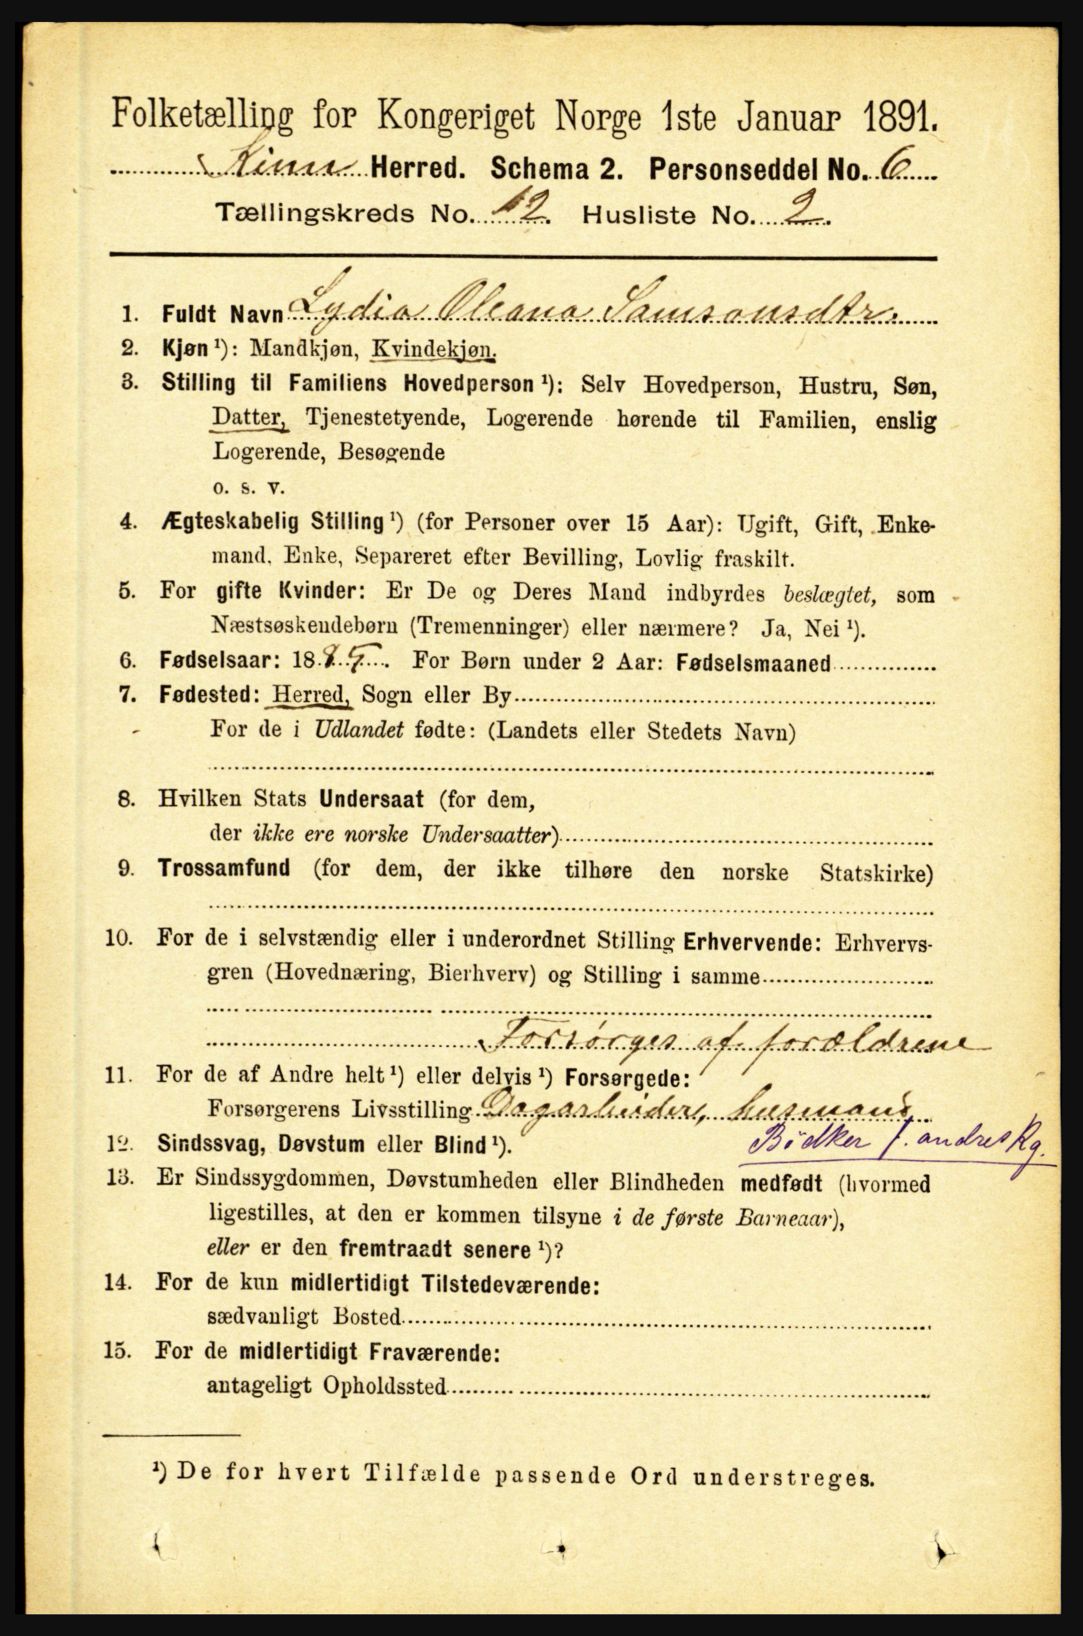 Folketælling for Kongeriget Norge 1ste Januar 1891.
Kinn Herred. Schema 2. Personseddel No. 6
Tællingskreds No. 12. Husliste No. 2.
1. Fuldt Navn Lydia Oleana Samsonsdtr.
2. Kjøn ¹): Mandkjøn, Kvindekjøn.
3. Stilling til Familiens Hovedperson ¹): Selv Hovedperson, Hustru, Søn,
Datter, Tjenestetyende, Logerende hørende til Familien, enslig
Logerende, Besøgende
o. s. v.
4. Ægteskabelig Stilling ¹) (for Personer over 15 Aar): Ugift, Gift, Enke-
mand, Enke, Separeret efter Bevilling, Lovlig fraskilt.
5. For gifte Kvinder: Er De og Deres Mand indbyrdes beslægtet, som
Næstsøskendebørn (Tremenninger) eller nærmere? Ja, Nei ¹).
6. Fødselsaar: 1885. For Børn under 2 Aar: Fødselsmaaned
7. Fødested: Herred, Sogn eller By
For de i Udlandet fødte: (Landets eller Stedets Navn)
8. Hvilken Stats Undersaat (for dem,
der ikke ere norske Undersaatter)
9. Trossamfund (for dem, der ikke tilhøre den norske Statskirke)
10. For de i selvstændig eller i underordnet Stilling Erhvervende: Erhvervs-
gren (Hovednæring, Bierhverv) og Stilling i samme
Forsørges af forældrene
11. For de af Andre helt ¹) eller delvis ¹) Forsørgede:
Forsørgerens Livsstilling Dagarbeider, husmand
Bödker f. andres Rg.
12. Sindssvag, Døvstum eller Blind ¹).
13. Er Sindssygdommen, Døvstumheden eller Blindheden medfødt (hvormed
ligestilles, at den er kommen tilsyne i de første Barneaar),
eller er den fremtraadt senere ¹)?
14. For de kun midlertidigt Tilstedeværende:
sædvanligt Bosted
15. For de midlertidigt Fraværende:
antageligt Opholdssted
¹) De for hvert Tilfælde passende Ord understreges.